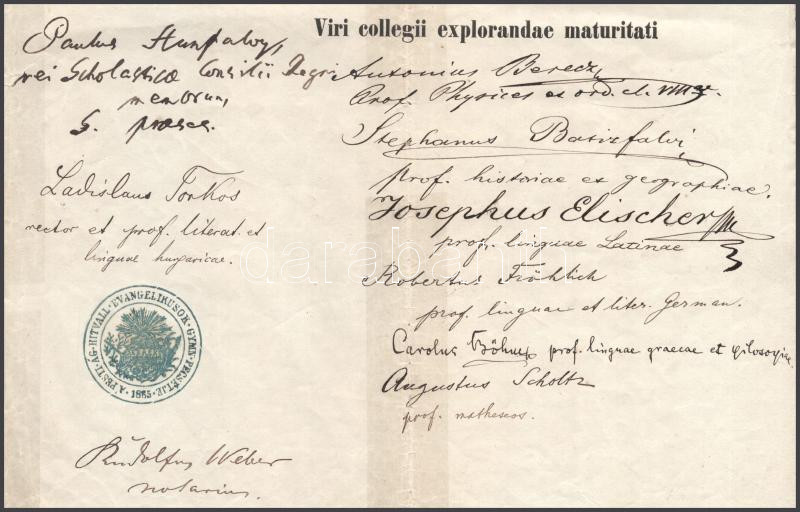 Viri collegii explorandae maturitati
Paulus Hunfalvy,
rei Scholasticae Consilii Regii
membrum,
S. praeses.
Ladislaus Torkos
rector et prof. literat. et
linguae hungaricae.
A PESTI ÁG. HITVALL. EVANGELIKUSOK GYMN. PECSÉTJE
1865
Rudolfus Weber
notarius.
Antonius Berecz,
Prof. Physices es ord. cl. VIII
Stephanus Batizfalvi,
prof. historiae ex geographiae.
Josephus Elischer
prof. linguae Latinae
Robertus Fröhlich
prof. linguae et liter. German.
Carolus Böhm prof. linguae graecae et filosofiae
Augustus Scholtz
prof. matheseos.
darabanth